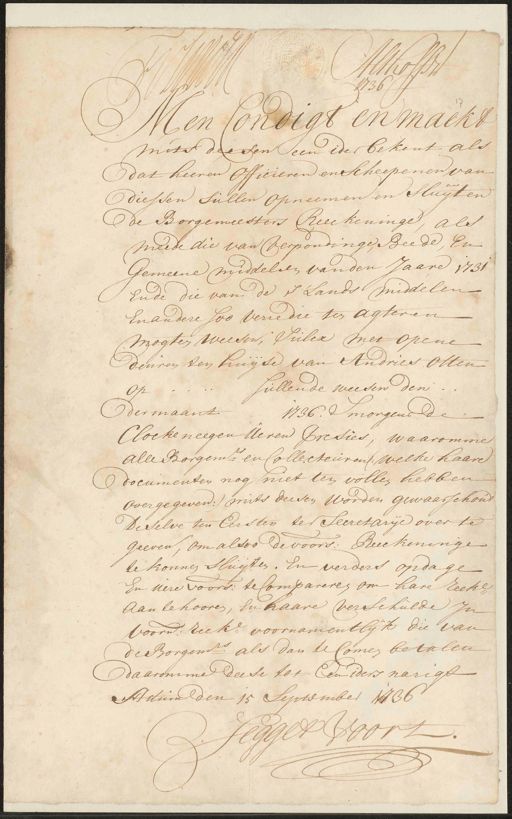 1736
17
Men Condigt en maekt
mits deesen een ider bekent als
dat heeren officieren en scheepenen van
diessen sullen opneemen en sluijten
de Borgemeesters Reeckeninge, als
meede die van verpondinge, Beede En
Gemeene middelen vanden Jaare 1731
Ende die van de s'Lands middelen
En andere soo verre die ten agteren
mogten weesen, sulx met opene
deuren ten huijse van Andries Otten
op . . . . sullende weesen den . .
der maant 1736 Smorgens De
Clocke neegen Uren Presies, waaromme
alle Borgemrs en Collecteuren, welke haare
documenten nog niet ten volle hebben
overgegeven, mits deesen worden gewaarschout
De selve ten Eersten ter Secretarije over te
geeven, om alsoo de voors: Reeckeninge
te konnen sluijten. En verders op dage
En uere voors: te Compareren om hare reeke
aan te hooren, En haare verschulde In
voorn: reeke voornamentlijk die van
de Borgemrs als dan te Comen betalen
daaromme deese tot Een iders narigt
Actum den 15 September 1736
Segget Voort.